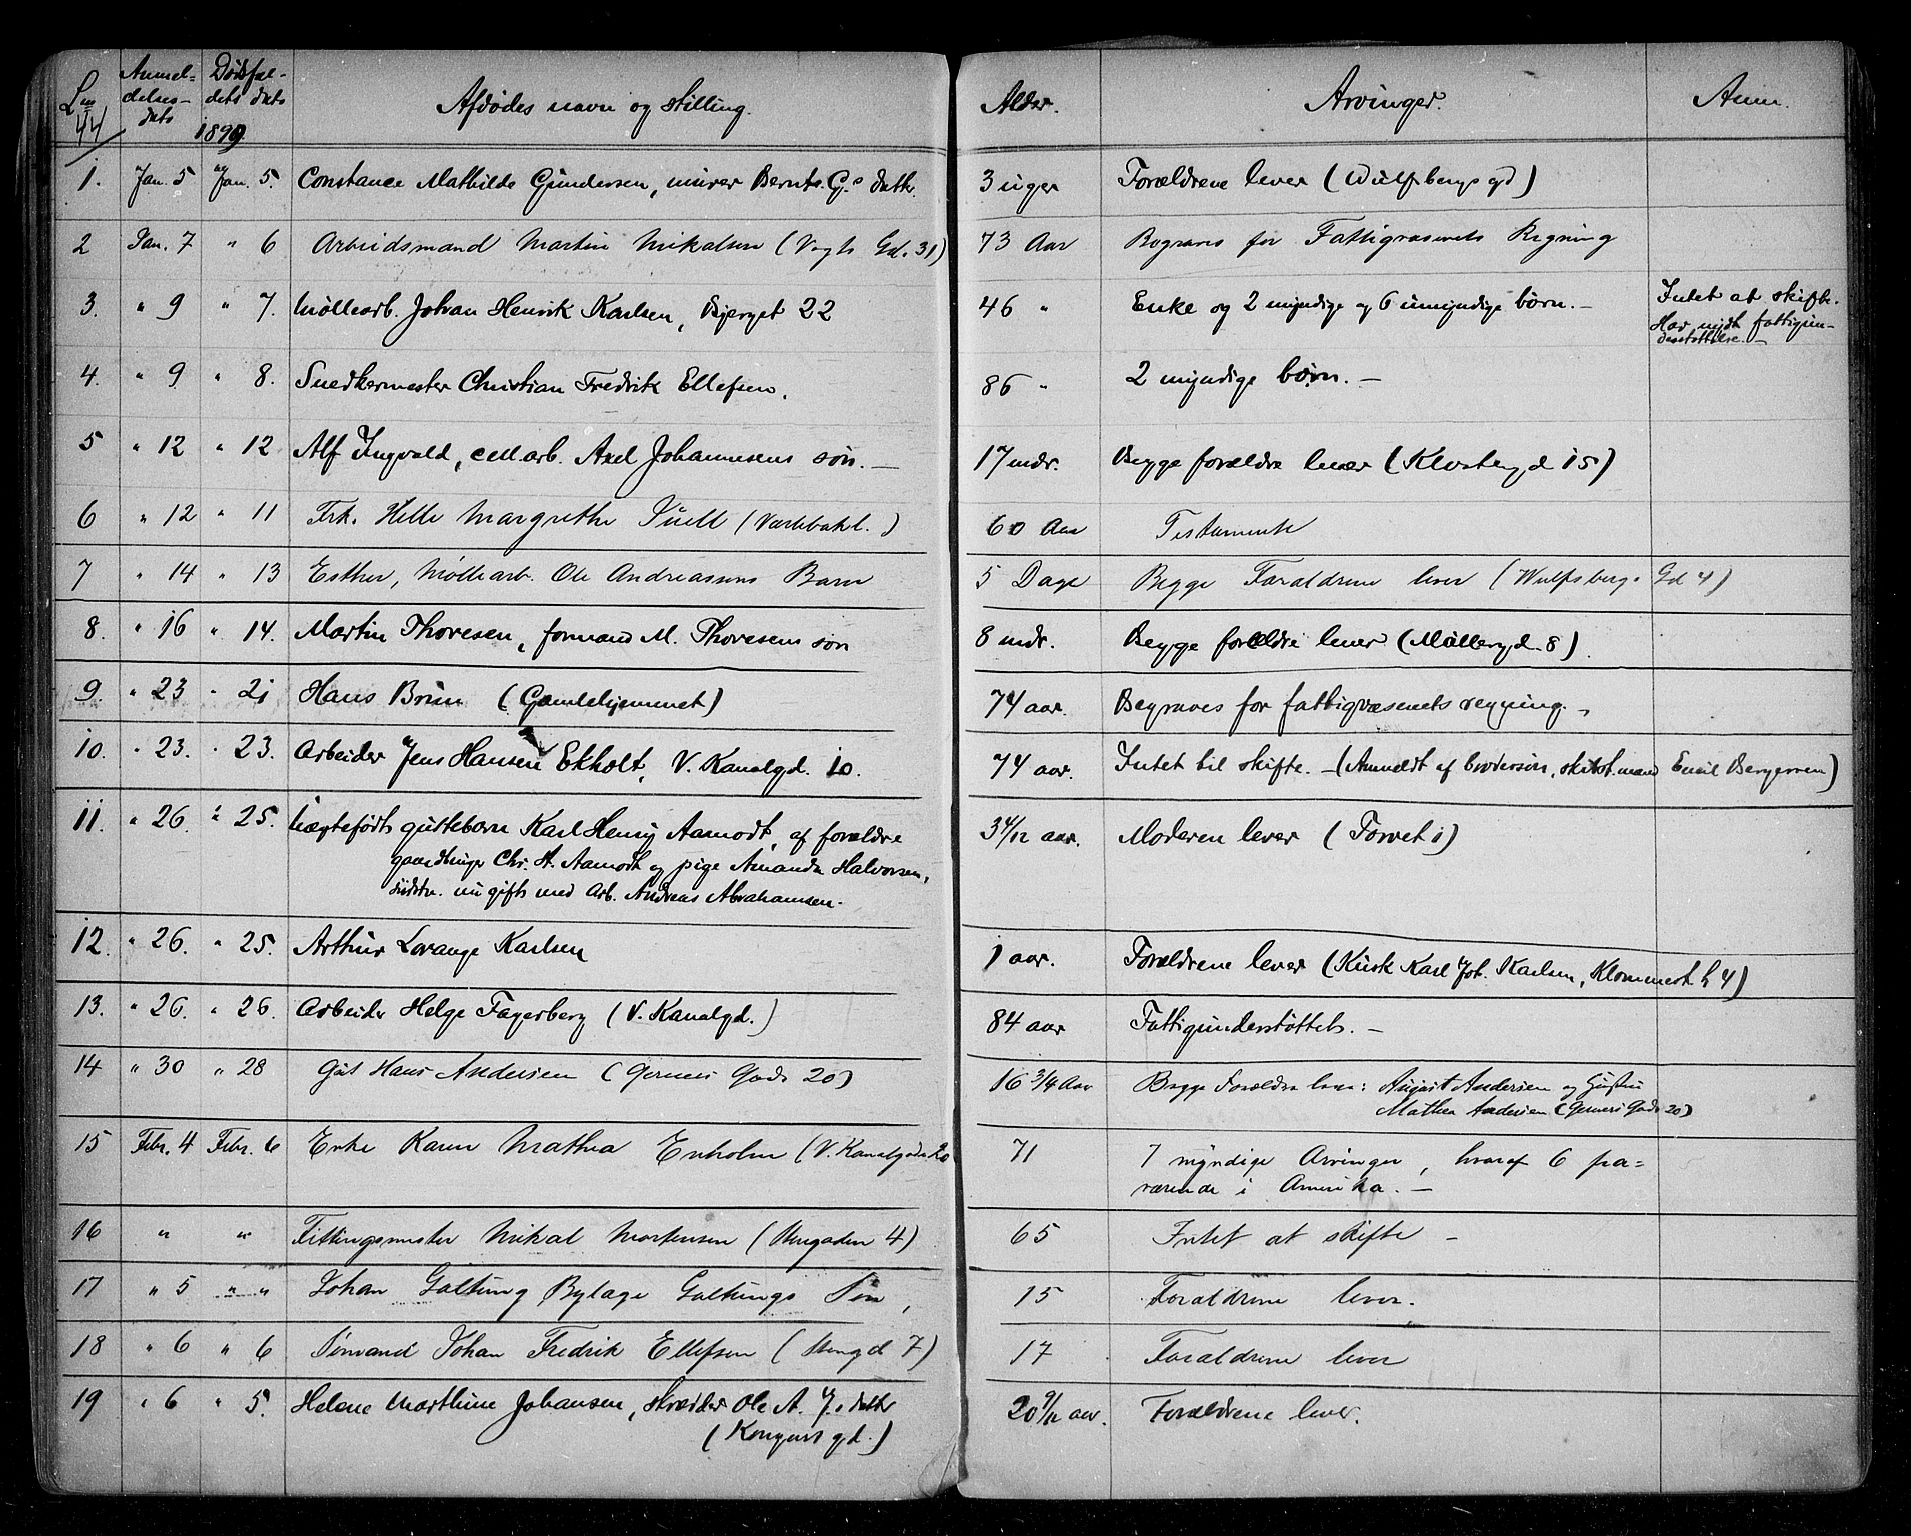 Lnr 44 Anmeldelsens dato Dødsfaldets dato 1899 Afdødes navn og stilling. Alder. Arvinger. Anm.
1. Jan. 5 Jan. 5. Constance Mathilde Gundersen, murer Bernts G.s datter. 3 uger Forældrene lever (Wulfsbergs gd)
2 Jan. 7 " 6 Arbeidsmand Martin Mikalsen (Vogts Gd. 31) 73 Aar Begraves for Fattigvæsenets Regning
3. " 9 " 7. Møllearb. Johan Henrik Karlsen, Bjerget 22 46 " Enke og 2 myndige og 6 umyndige børn. – Intet at skifte.
Har nydt fattigun-
derstøttelse. –
4. " 9 " 8. Snedkermester Christian Fredrik Ellefsen. 86 " 2 myndige børn. –
5 " 12 " 12 Alf Ingvald, cell.arb. Axel Johannesens søn. – 17 mdr. Begge forældre lever (Klosterg d 15)
6 " 12 " 11 Frk. Helle Margrethe (Værlebakk.) 60 Aar Testamente
7 " 14 " 13 Esther, Møllearb. Ole Andreassens Barn 5 Dage Begge Forældrene lever (Wulfsbergs Gd 4)
8. " 16 " 14. Martin Thoresen, formand M. Thoresens søn 8 mdr. Begge forældre lever (Møllergd. 8)
9. " 23 " 21 Hans Brun (Gamlehjemmet) 74 aar. Begraves for fattigvæsenets regning. –
10. " 23. " 23. Arbeider Jens Hansen Ekholt, V. Kanalgd. 10. 74 aar. Intet til skifte. – (Anmeldt af brodersøn, skibst.mand Emil Bergersen)
11. " 26. " 25. Uægtefødt gutteborn Karl Henry Aamodt, af forældre 3 4/12 aar. Moderen lever (Torvet 1)
gaardbruger Chr. H. Aamodt og pige Amanda Halvorsen,
sidstn. nu gift med Arb. Andreas Abrahamsen.
12. " 26. " 25. Arthur Lorange Karlsen 1 aar. Forældrene lever (Kusk Karl Joh. Karlsen, 4)
13. " 26. " 26. Arbeider Helge Fagerberg (V. Kanalgd.) 84 aar Fattigunderstøttet. –
14 " 30 " 28 Gut Hans Andersen (Gerners Gade 20) 16 3/4 Aar Begge Forældre lever: August Andersen og Hustru
Mathea Andersen (Gerners Gade 20)
15 Febr. 4 Febr. 6 Enke Karen Mathea Enholm (V. Kanalgade 20 71 7 myndige Arvinger, hvoraf 6 fra-
værende i Amerika. –
16 " " Fittingsmester Mikal Mortensen (Stengaden 4) 65 Intet at skifte –
17 " 5 " " Johan Galtung Byfoge Galtungs Søn, 15 Forældrene lever.
18 " 6 " 6 Sømand Johan Fredrik Ellefsen (Stengd 7) 17 Forældrene lever
19 " 6 " 5. Helene Marthine Johansen, skrædder Ole A. J.s datter 20 9/12 aar. Forældrene lever.
(Kongens gd.)